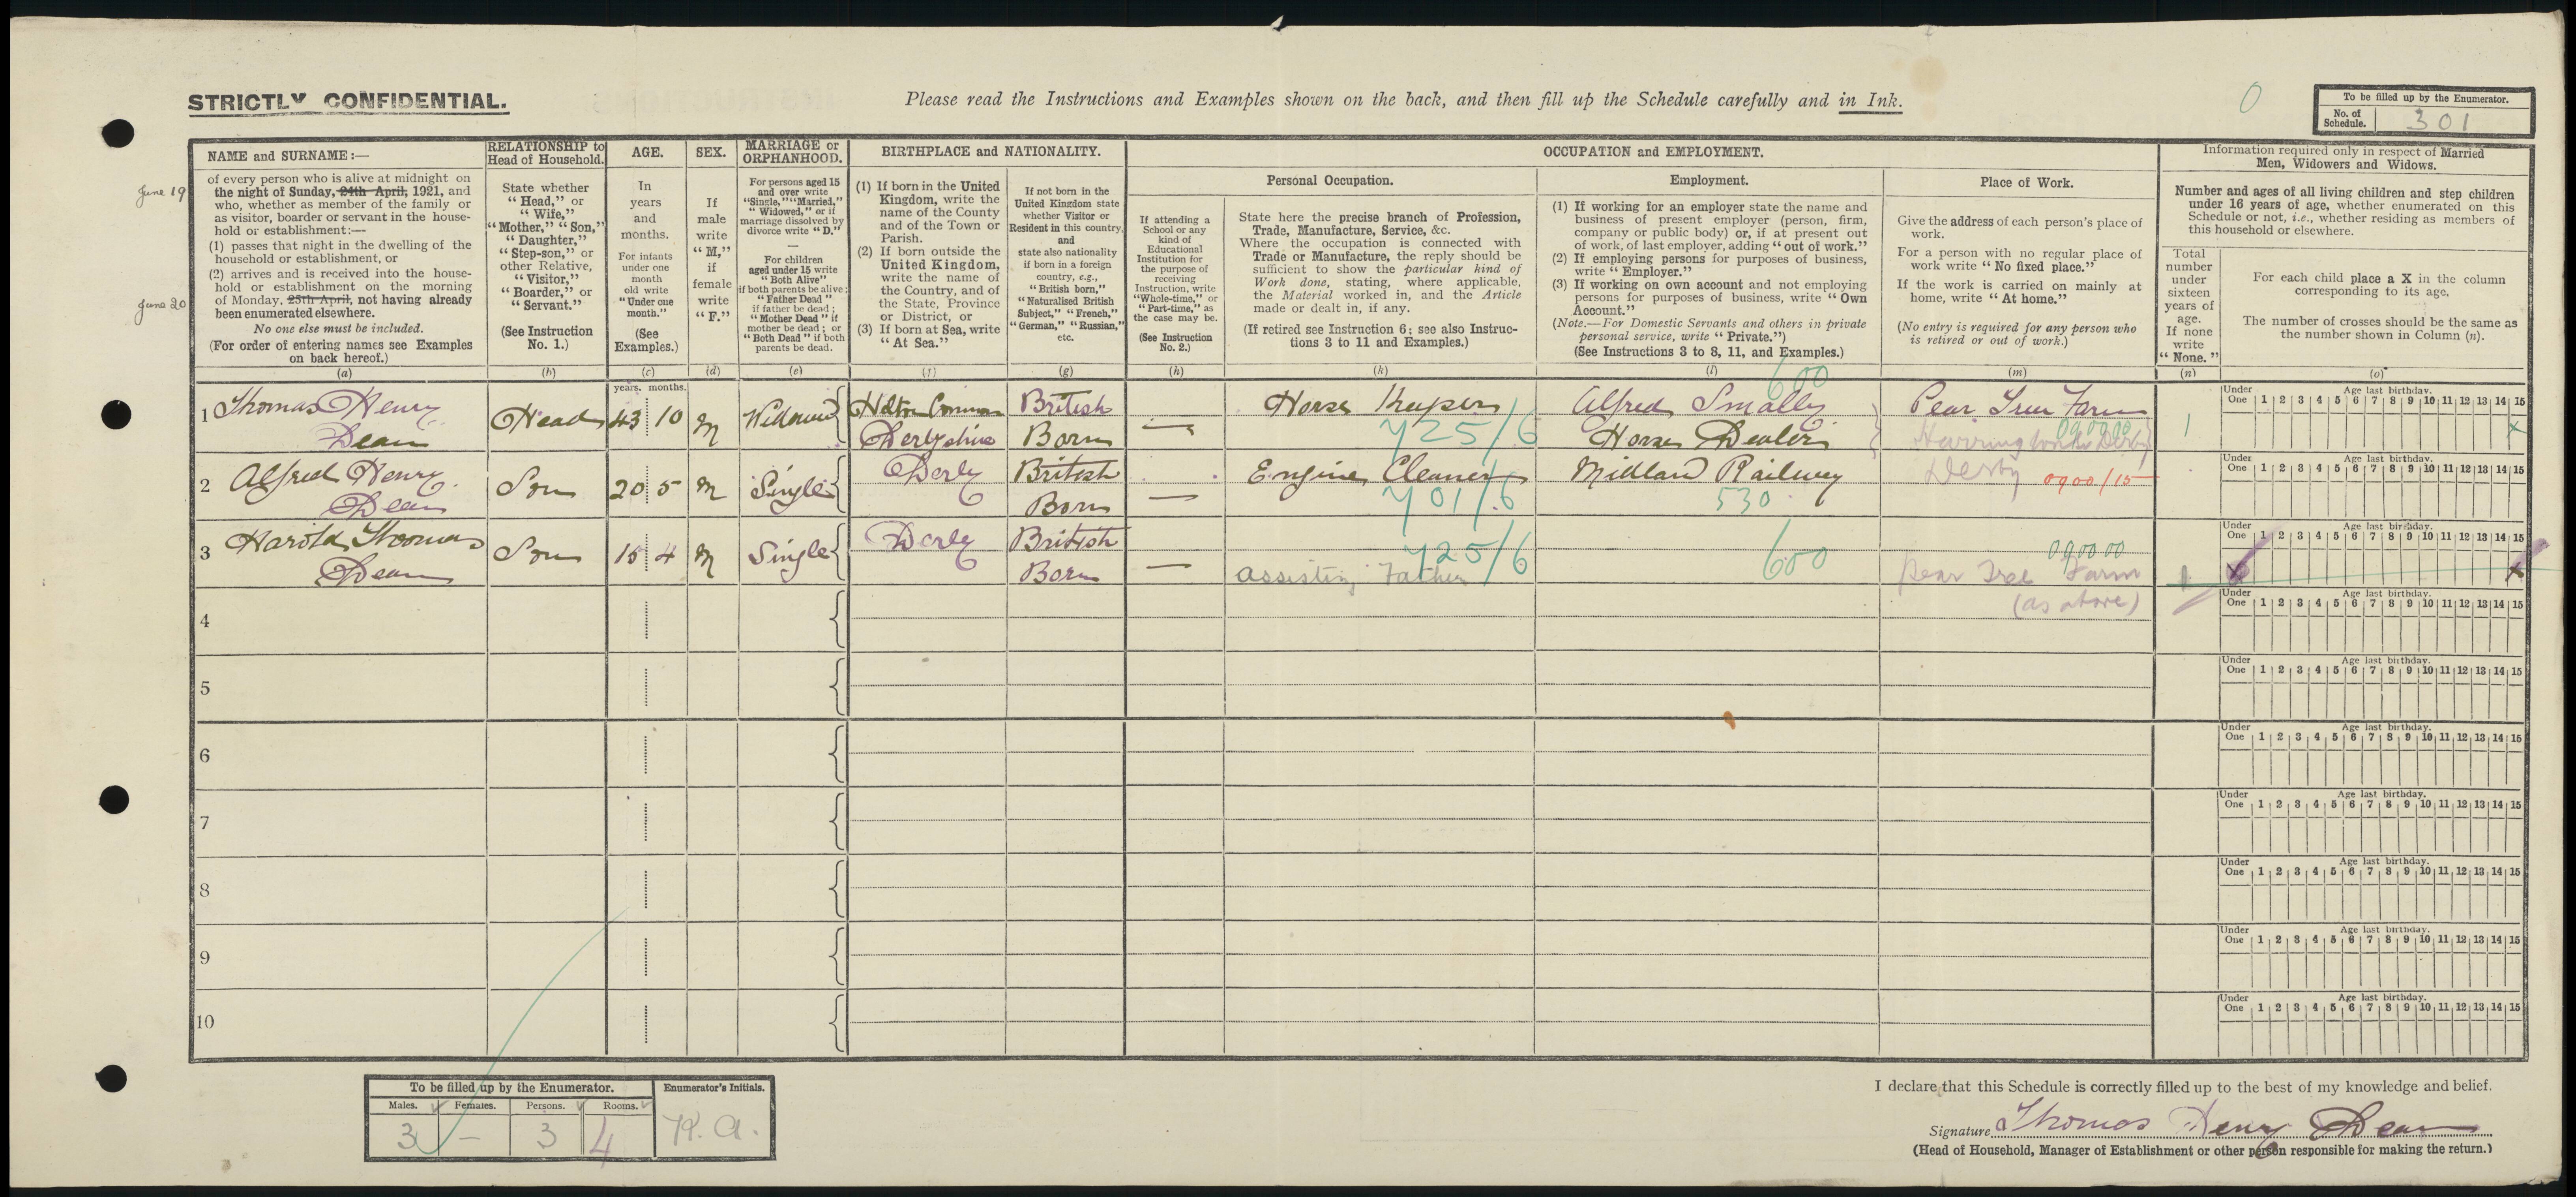 STRICTLY CONFIDENTIAL.
Please read the Instructions and Examples shown on the back, and then fill up the Schedule carefully and in Ink.
0
To be filled up by the Enumerator.
No. of Schedule. 301
NAME and SURNAME:—
of every person who is alive at midnight on
June 19
the night of Sunday, 24th April, 1921, and
who, whether as member of the family or
as visitor, boarder or servant in the house-
hold or establishment:—
(1) passes that night in the dwelling of the
household or establishment, or
(2) arrives and is received into the house-
hold or establishment on the morning
June 20
of Monday, 25th April, not having already
been enumerated elsewhere.
No one else must be included.
(For order of entering names see Examples
on back hereof.)
(a)
RELATIONSHIP to
Head of Household.
State whether
"Head," or
"Wife,"
"Mother," "Son,"
"Daughter,"
"Step-son," or
other Relative,
"Visitor,"
"Boarder," or
"Servant."
(See Instruction
No. 1.)
(b)
AGE.
In
years
and
months.
For infants
under one
month
old write
"Under one
month."
(See
Examples.)
(c)
SEX.
If
male
write
"M,"
if
female
write
"F."
(d)
MARRIAGE or
ORPHANHOOD.
For persons aged 15
and over write
"Single," "Married,"
"Widowed," or if
marriage dissolved by
divorce write "D."
—
For children
aged under 15 write
"Both Alive"
if both parents be alive;
"Father Dead"
if father be dead;
"Mother Dead" if
mother be dead; or
"Both Dead" if both
parents be dead.
(e)
BIRTHPLACE and NATIONALITY.
(1) If born in the United
Kingdom, write the
name of the County
and of the Town or
Parish.
(2) If born outside the
United Kingdom,
write the name of
the Country, and of
the State, Province
or District, or
(3) If born at Sea, write
"At Sea."
(f)
If not born in the
United Kingdom state
whether Visitor or
Resident in this country,
and
state also nationality
if born in a foreign
country, e.g.,
"British born,"
"Naturalised British
Subject," "French,"
"German," "Russian,"
etc.
(g)
OCCUPATION and EMPLOYMENT.
If attending a
School or any
kind of
Educational
Institution for
the purpose of
receiving
Instruction, write
"Whole-time," or
"Part-time," as
the case may be.
(See Instruction
No. 2.)
(h)
Personal Occupation.
State here the precise branch of Profession,
Trade, Manufacture, Service, &c.
Where the occupation is connected with
Trade or Manufacture, the reply should be
sufficient to show the particular kind of
Work done, stating, where applicable,
the Material worked in, and the Article
made or dealt in, if any.
(If retired see Instruction 6; see also Instruc-
tions 3 to 11 and Examples.)
(k)
Employment.
(1) If working for an employer state the name and
business of present employer (person, firm,
company or public body) or, if at present out
of work, of last employer, adding "out of work."
(2) If employing persons for purposes of business,
write "Employer."
(3) If working on own account and not employing
persons for purposes of business, write "Own
Account."
(Note.—For Domestic Servants and others in private
personal service, write "Private.")
(See Instructions 3 to 8, 11, and Examples.)
(l)
Place of Work.
Give the address of each person's place of
work.
For a person with no regular place of
work write "No fixed place."
If the work is carried on mainly at
home, write "At home."
(No entry is required for any person who
is retired or out of work.)
(m)
Information required only in respect of Married
Men, Widowers and Widows.
Number and ages of all living children and step children
under 16 years of age, whether enumerated on this
Schedule or not, i.e., whether residing as members of
this household or elsewhere.
Total
number
under
sixteen
years of
age.
If none
write
"None."
(n)
For each child place a X in the column
corresponding to its age.
The number of crosses should be the same as
the number shown in Column (n).
(o)
years. months.
600
Under One Age last birthday. 1 2 3 4 5 6 7 8 9 10 11 12 13 14 15
1 Thomas Henry Head 43 10 M Widower Hilton Common British — Horse Keeper Alfred Smalley Pear Tree Farm 1 X
Dean Derbyshire Born 725/6 Horse Dealer Derby 090000
Under One Age last birthday. 1 2 3 4 5 6 7 8 9 10 11 12 13 14 15
2 Alfred Henry Son 20 5 M Single Derby British — Engine Cleaner Midland Railway Derby 0900/15
Dean Born 701/6 530
Under One Age last birthday. 1 2 3 4 5 6 7 8 9 10 11 12 13 14 15
3 Harold Thomas Son 15 4 M Single Derby British — 725/6 600 090000
Dean Born Assisting Father Pear Tree Farm 1 X X
(as above)
Under One Age last birthday. 1 2 3 4 5 6 7 8 9 10 11 12 13 14 15
4
Under One Age last birthday. 1 2 3 4 5 6 7 8 9 10 11 12 13 14 15
5
Under One Age last birthday. 1 2 3 4 5 6 7 8 9 10 11 12 13 14 15
6
Under One Age last birthday. 1 2 3 4 5 6 7 8 9 10 11 12 13 14 15
7
Under One Age last birthday. 1 2 3 4 5 6 7 8 9 10 11 12 13 14 15
8
Under One Age last birthday. 1 2 3 4 5 6 7 8 9 10 11 12 13 14 15
9
Under One Age last birthday. 1 2 3 4 5 6 7 8 9 10 11 12 13 14 15
10
To be filled up by the Enumerator.
Males. Females. Persons. Rooms.
3 — 3 4
Enumerator's Initials.
I declare that this Schedule is correctly filled up to the best of my knowledge and belief.
Signature Thomas Henry Dean
(Head of Household, Manager of Establishment or other person responsible for making the return.)